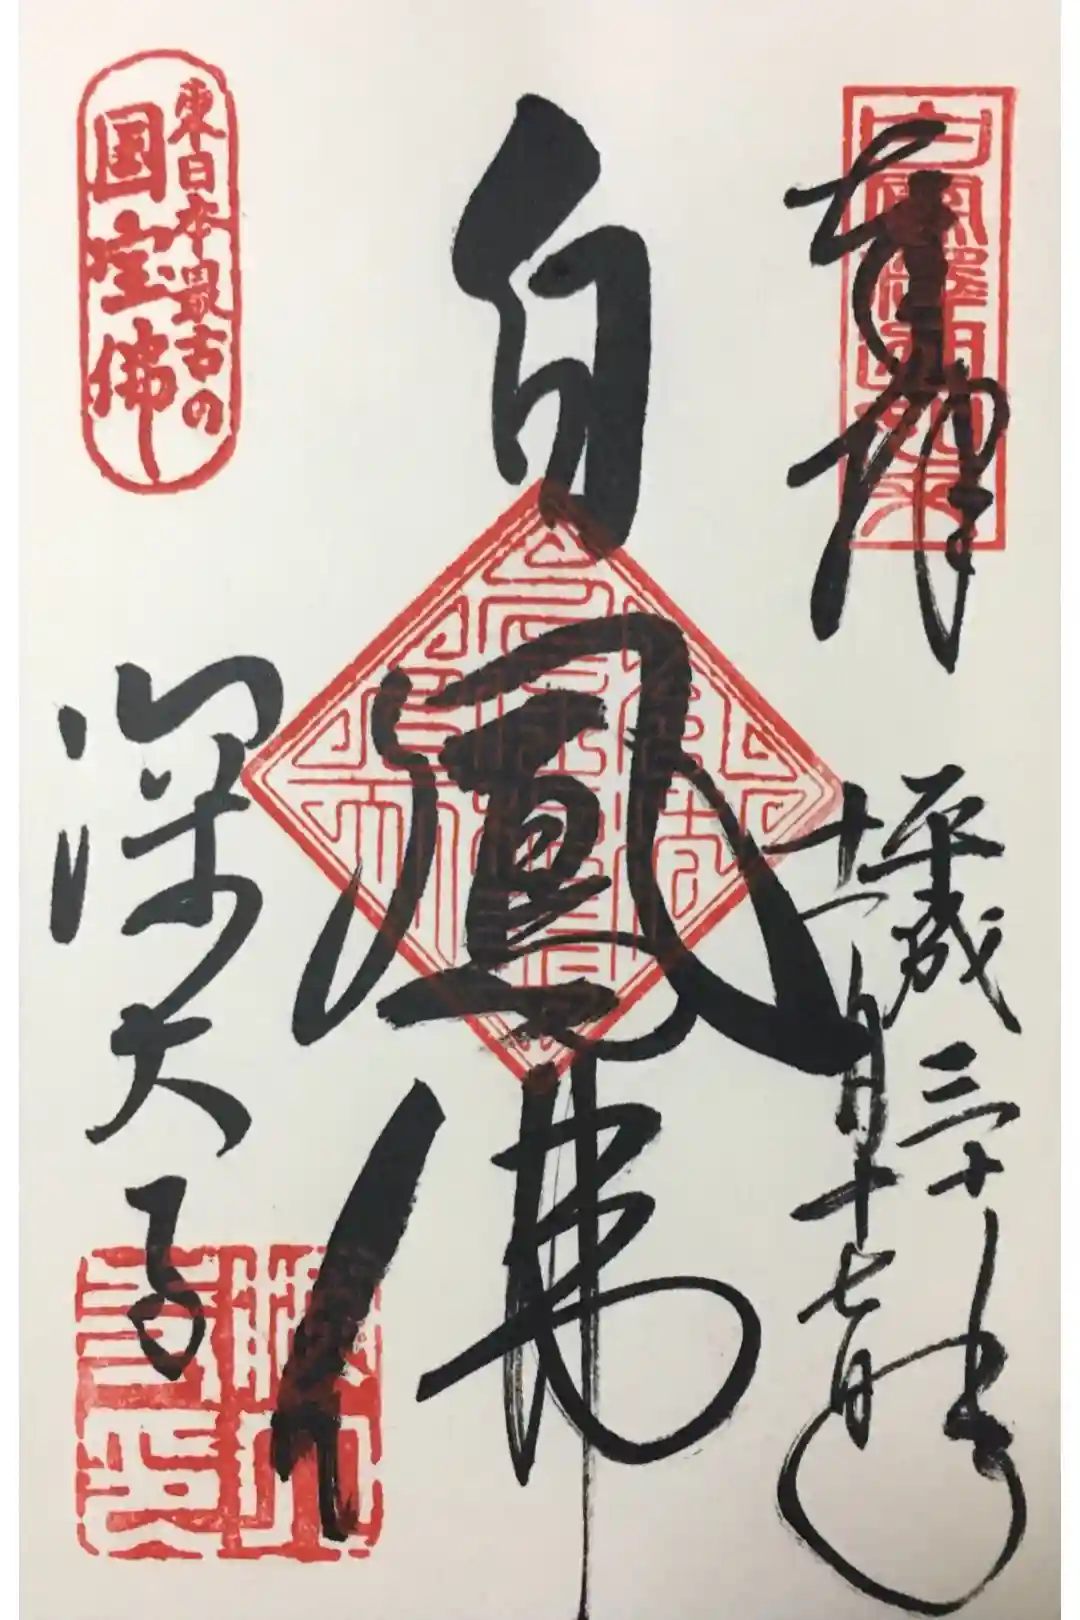 奉拝
平成三十年
十二月十七日
白鳳佛
東日本最古の
国宝佛
深大寺